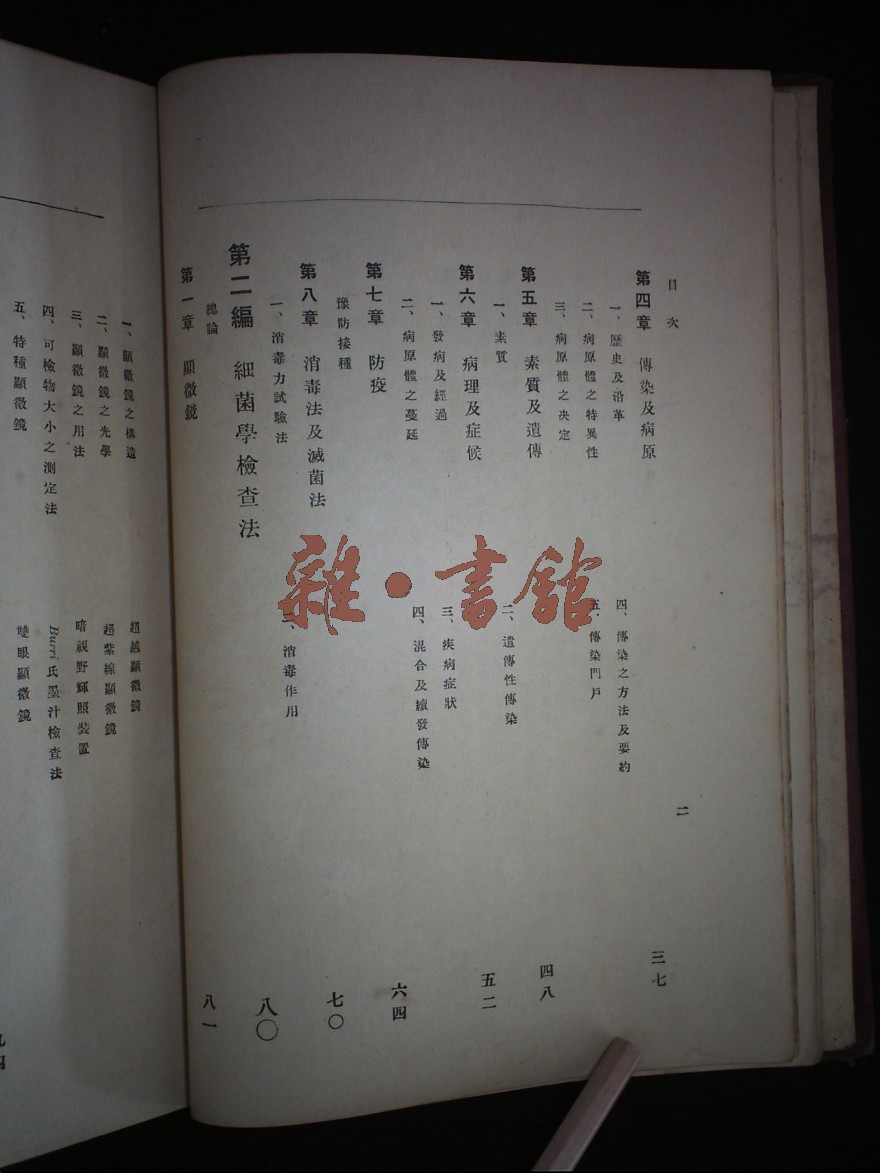 目次
二
第四章 傳染及病原
三七
一、歷史及沿革
四、傳染之方法及要約
二、病原體之特異性
五、傳染門戶
三、病原體之決定
第五章 素質及遺傳
四八
一、素質
二、遺傳性傳染
第六章 病理及症候
五二
一、發病及經過
三、疾病症狀
二、病原體之蔓延
四、混合及續發傳染
第七章 防疫
六四
豫防接種
第八章 消毒法及滅菌法
七〇
一、消毒力試驗法
二、消毒作用
第二編 細菌學檢查法
八〇
總論
第一章 顯微鏡
八一
一、顯微鏡之構造
超越顯微鏡
二、顯微鏡之光學
超紫線顯微鏡
三、顯微鏡之用法
暗視野輝照裝置
四、可檢物大小之測定法
Burri氏墨汁檢查法
五、特種顯微鏡
雙眼顯微鏡
雜·書館